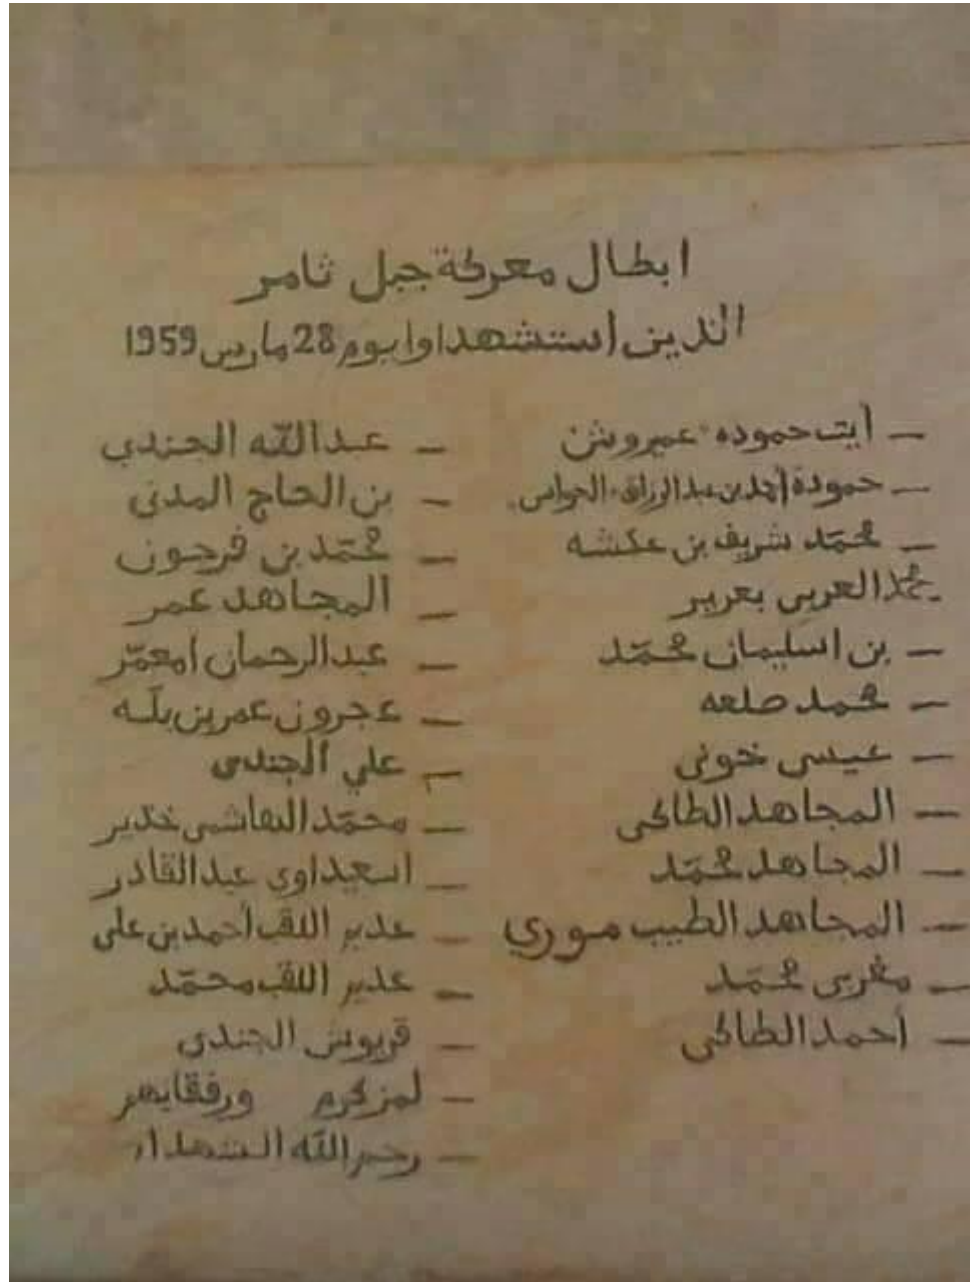 ابطال معركة جبل ثامر
الذين استشهداوا يوم 28 مارس 1959
– أيت حموده "عميروش
– حمودة أحمد بن عبد الرزاق "الحواس"
– محمّد شريف بن عكشه
– محمد العربي بعرير
– بن اسليمان محمّد
– محمد صلعه
– عيسى خوني
– المجاهد الطاكي
– المجاهد محمّد
– المجاهد الطيب موري
– مغربي محمّد
– أحمد الطاكي
– عبد اللّه الجندي
– بن الحاج المدني
– محمّد بن فرجون
– المجاهد عمر
– عبد الرحمان امعمّر
– عجرون عمر بن بلّه
– علي الجندي
– محمّد الهاشمي خذير
– اسعيداوي عبد القادر
– عديم اللقب أحمد بن علي
– عديم اللقب محمّد
– قريوش الجندي
– لمز كرم ورفقايهم
– رحم اللّه الشهداء